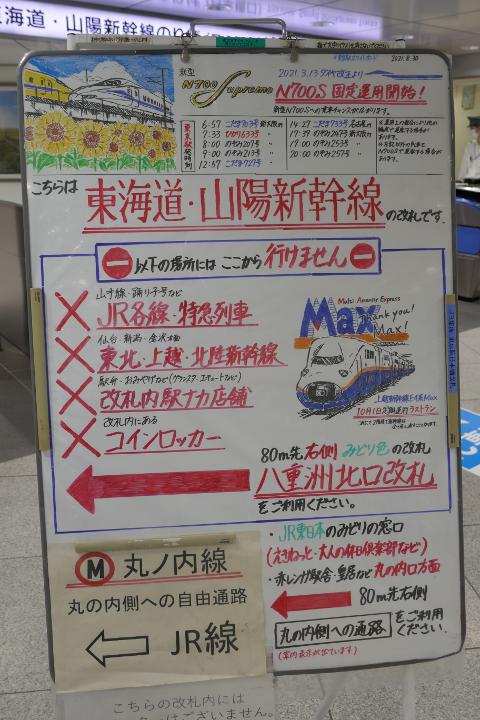 東海道・山陽新幹線のり
2021.8.30
新型 N700 Supreme
2021.3.13ダイヤ改正より
N700S 固定運用開始！
新型N700Sへの乗車チャンスが広がります。
東京駅発時刻
6:57 こだま703号 新大阪行
7:33 ひかり633号 〃
8:00 のぞみ207号 〃
9:00 のぞみ213号 〃
12:57 こだま727号
14:27 こだま733号 名古屋行
17:39 のぞみ247号 新大阪行
19:00 のぞみ253号 〃
20:00 のぞみ257号 〃
こちらは
東海道・山陽新幹線
の改札です。
以下の場所には ここから 行けません
山手線・踊り子号など
JR各線・特急列車
仙台・新潟・金沢方面
東北・上越・北陸新幹線
駅弁・おみやげなど(グランスタ・エキュートなど)
改札内駅ナカ店舗
改札内にある
コインロッカー
Multi Amenity Express
Max
Thank you!
Max!
上越新幹線E4系Max
10月1日定期運行ラストラン
80m先右側 みどり色 の改札
八重洲北口改札
をご利用ください。
・JR東日本のみどりの窓口
(えきねっと・大人の休日倶楽部など)
・赤レンガ駅舎・皇居など丸の内口方面
80m先右側
丸の内側への通路
をご利用ください。
(案内表示が出ています)
M 丸ノ内線
丸の内側への自由通路
JR線
こちらの改札内には
ございません。